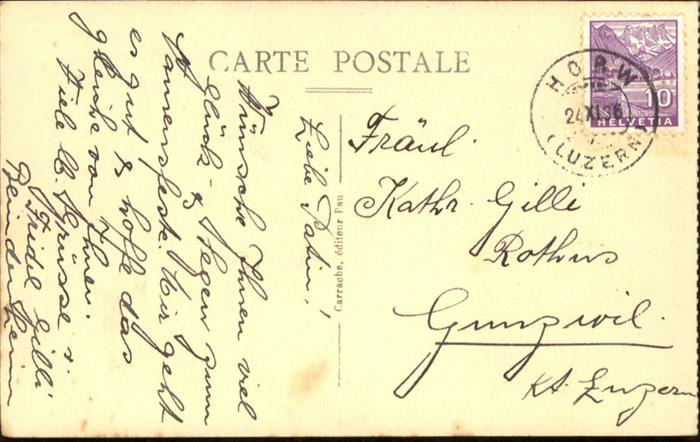 CARTE POSTALE
Liebe Patin!
Wünsche Ihnen viel
Glück- & Segen zum
Namensfeste. Mir geht
es gut & hoffe das
gleiche von Ihnen.
Viele lb. Grüsse v.
Fridel Gilli
Carrache, éditeur Pau
Fräul.
Kathr. Gilli
Rothus
Gunzwil.
Kt. Luzern
HORW
24.XI.36
(LUZERN)
10
HELVETIA